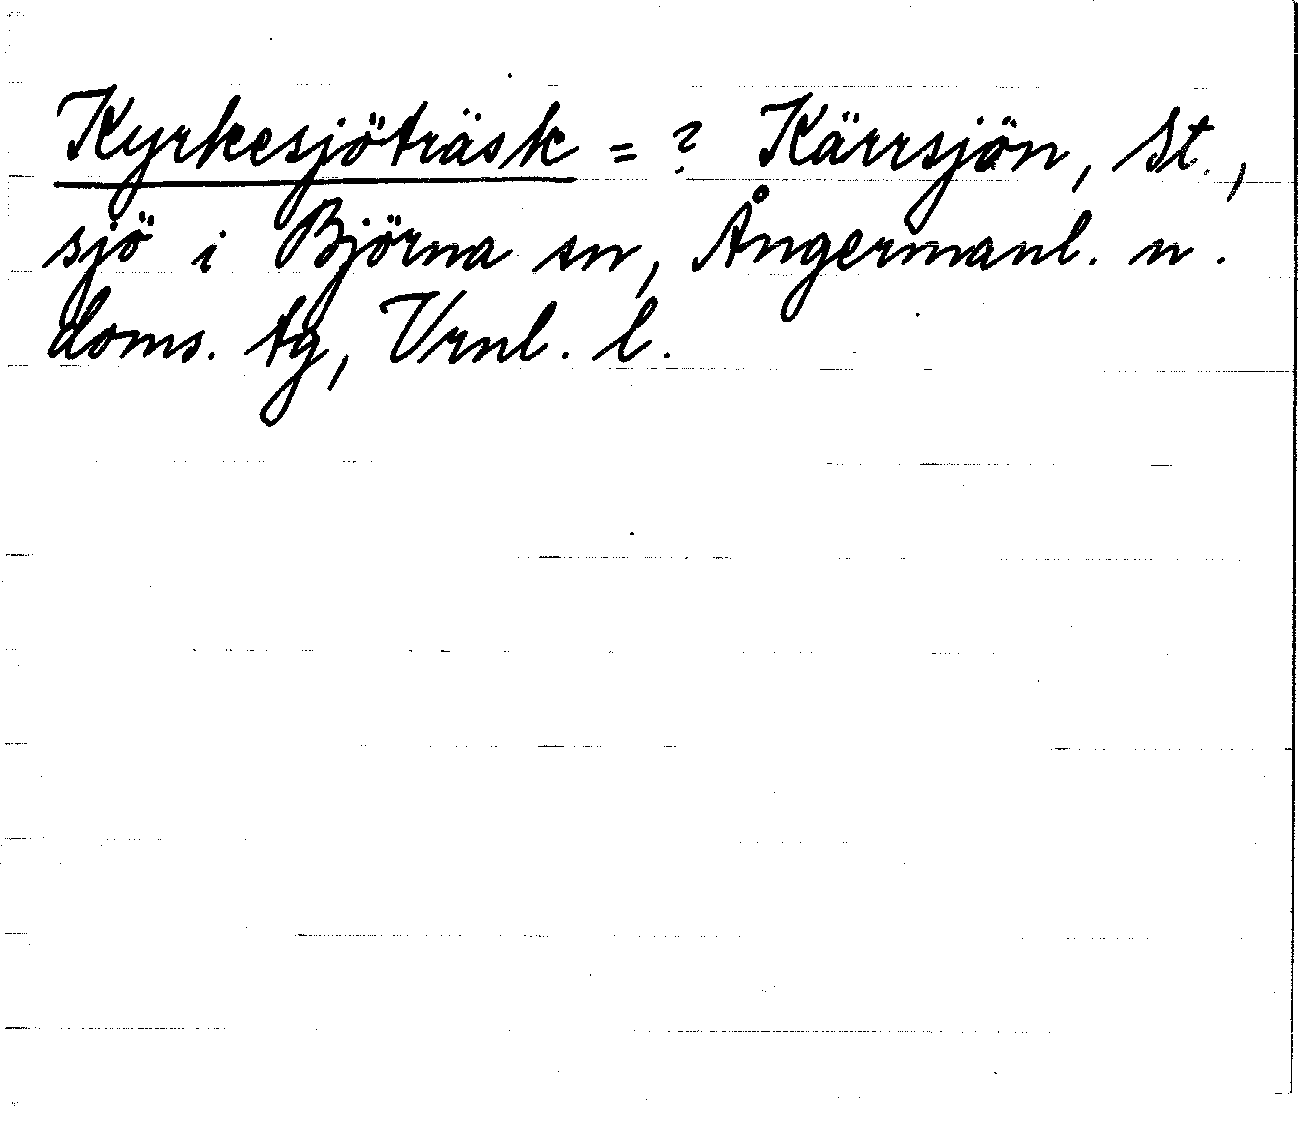 Kyrkesjöträsk = ? Kärrsjön, St.,
sjö i Björna sn, Ångermanl. n.
doms. tg, Vrnl. l.